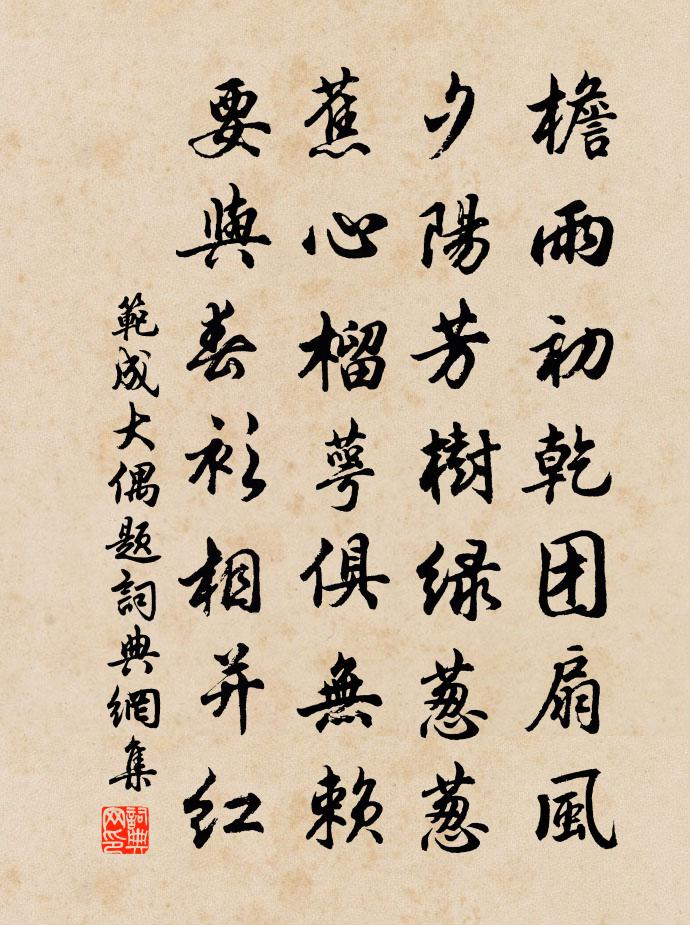 檐雨初乾团扇風
夕陽芳樹緑葱葱
蕉心榴萼俱無賴
要與春衫相并红
範成大偶题詞典網集
詞典网印